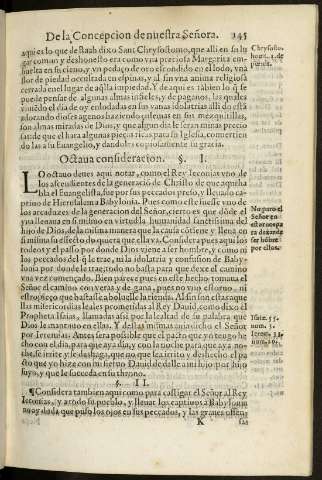 De la Concepcion de nuestra Señora. 145
aqui es lo que de Raab dixo Sant Chrysostomo, que alli en su lu
gar comun y deshonesto era como vna preciosa Margarita em-
buelta en su cieno, y vn pedaço de oro escondido en el lodo, vna
flor de piedad ocultada en espinas, y al fin vna anima religiosa
cerrada en el lugar de aq̃lla impiedad. Y de aqui es tãbien lo q̃ se
puede pensar de algunas almas infieles, y de paganos, las quales
viniẽdo el dia de oy enlodadas en sus vanas idolatrias alli do està
adorando dioses agenos haziendo en sus mezquitillas,
son almas miradas de Dios, y que algun dia le seran minas precio
sas de que el hara algunas piedras ricas para su Iglesia, conuertien
do las a su Euangelio, y dandoles copiosamente su gracia.
Chrysosto.
homi. 1. de
Octaua consideracion. §. I.
LO octauo deues aqui notar, como el Rey Ieconias vno de
los ascendientes de la generaciõ de Christo de que aqui ha
bla el Euangelista, fue por sus peccados preso, y lleuado cap-
tiuo de Hierusalem a Babylonia. Pues como este fuesse vno de
los arcaduzes de la generacion del Señor, cierto es que dõde el
yua lleuara en si mismo en virtud la humanidad sanctissima del
hijo de Dios, de la misma manera que la causa cõtiene y lleua en
si misma su effecto do quiera que ella va. Considera pues aqui los
rodeos y el passo por donde Dios viene a ser hombre, y como ni
los peccados del q̃ le trae, ni la idolatria y confusion de Baby-
lonia por donde lo traen, no basta para que dexe el camino
vna vez començado. Bien parece pues en este hecho tomaua el
Señor el camino con veras y de gana, pues no vuo estoruo, ni
estropieço que bastasse a boluelle la rienda. Al fin son estas aque
llas misericordias leales prometidas al Rey Dauid, como dixo el
Propheta Isaias, llamadas assi por la lealtad de su palabra que
Dios le mantuuo en ellas. Y destas mismas auia dicho el Señor
por Ieremias. Antes sera possible que el pacto que yo tengo he
cho con el dia, para que aya dia, y con la noche para que aya no-
che, se irrite y se deshaga, que no que sea irrito y deshecho el pa
cto que yo hize con mi sieruo Dauid de dalle a mi hijo por hijo
suyo, y que le succeda en su throno.
No paro el
Señor en
ser hõbre
por ellos.
Isaiæ. 55.
num. 3.
Ierem. 33.
num. 20.
§. II.
¶Considera tambien aqui como para castigar el Señor al Rey
Ieconias, y a todo su pueblo, y lleuar los captiuos a Babylonia
no oluida que puso los ojos en sus peccados, y las graues offen-
K
sas